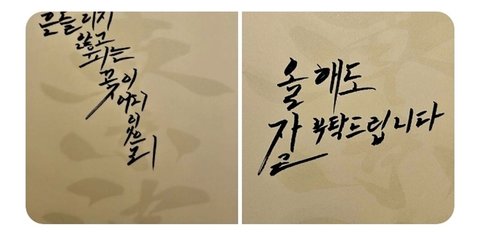 흔들리지
않고
피는
꽃이
어디
있으
리
올해도
잘 부탁드립니다